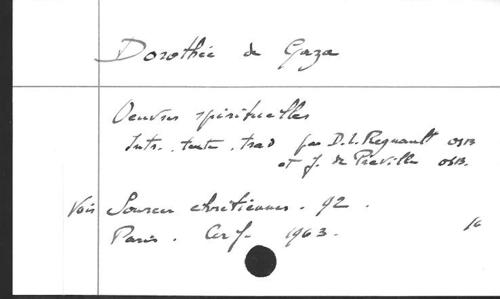 Dorothée de Gaza
Oeuvres spirituelles
Intr. texte. trad par D.L. Regnault OSB
et J. de Préville OSB.
Voir Sources chrétiennes. 92.
Paris. Cerf. 1963.